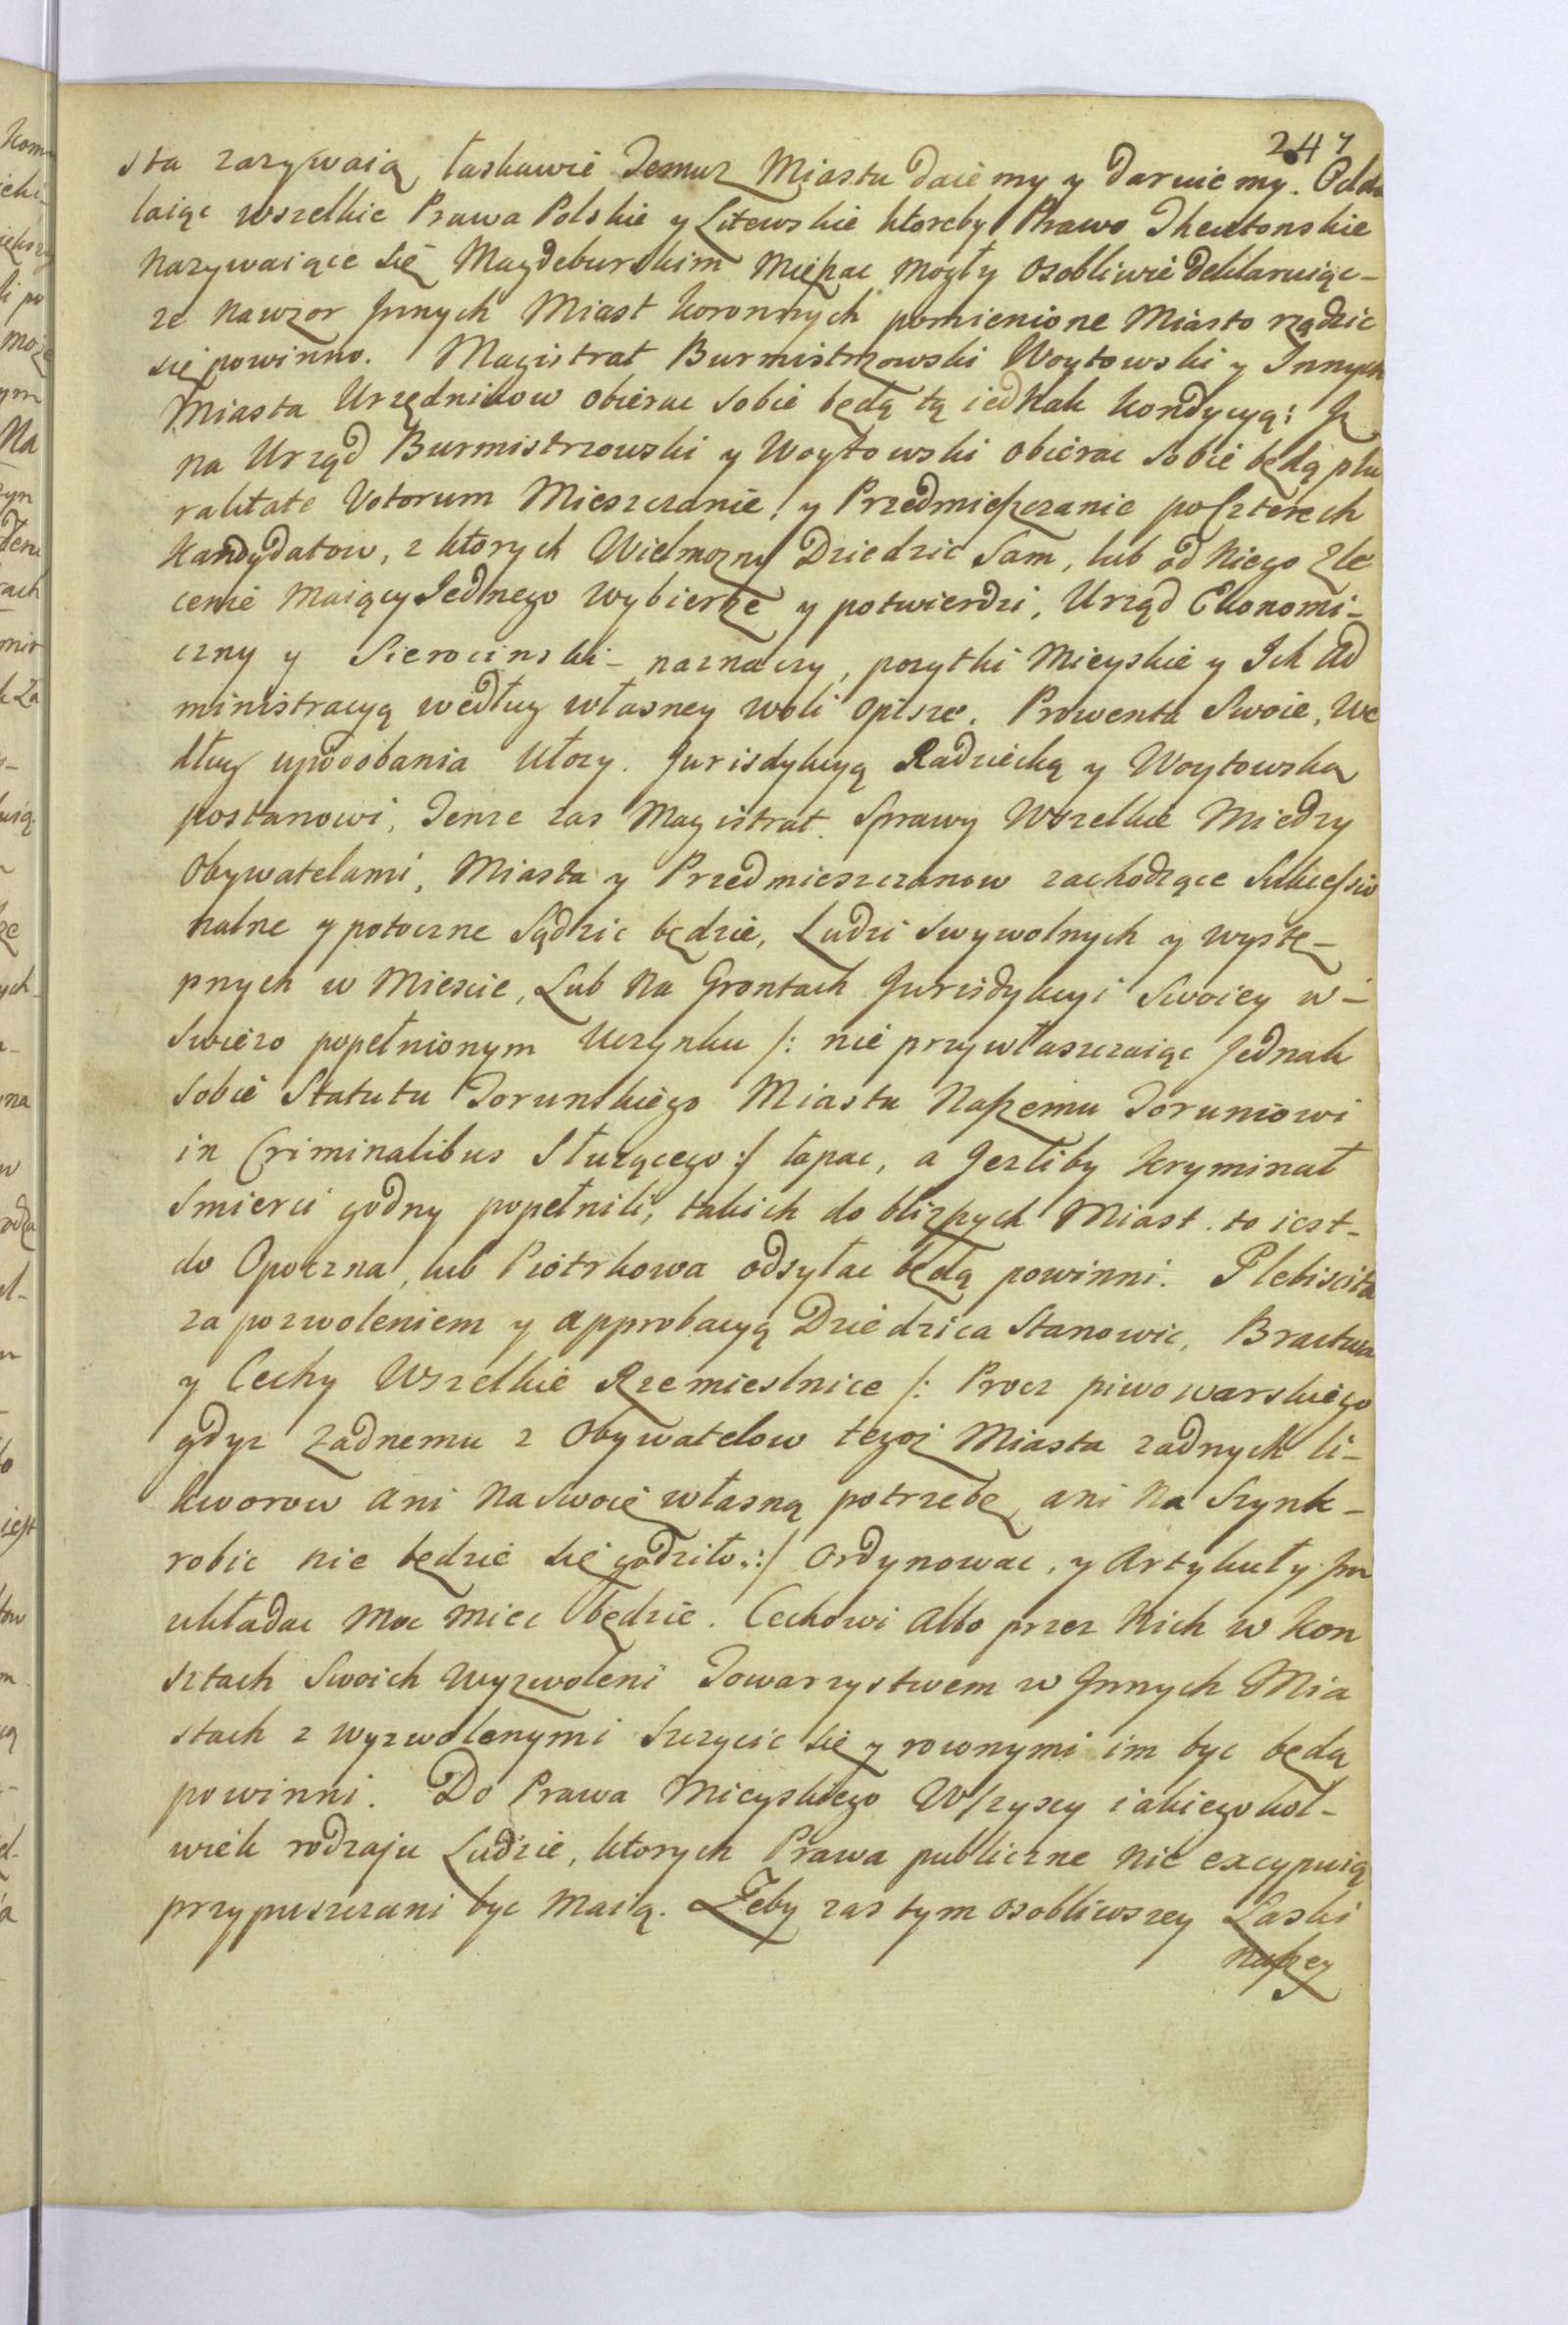 247
sta zazywaią łaskawie Temuz Miastu daiemy y daruiemy. Odda
laiąc wszelkie Prawa Polskie y Litewskie ktoreby Prawo Theutonskie
Nazywaiące się Magdeburskim Mięszac mogły osobliwie deklaruiąc-
ze nawzor Innych Miast Koronnych pomienione Miasto rządzic
się powinno. Magistrat Burmistrzowski Woytowski y Innych
Miasta Urzędnikow obierac sobie będą tą iednak kondycyą: Iz
na Urząd Burmistrzowski y Woytowski obierac sobie będą plu
ralitate Votorum Mieszczanie, y Przedmieszczanie po Czterech
Kandydatow, z ktorych Wielmozny Dziedzic Sam, lub od Niego Zle
cenie Maiący Jednego wybierze y potwierdzi, Urząd Ekonomi-
czny y Sierocinski- naznaczy, pozytki Mieyskie y Ich Ad
ministracyą według własney woli opisze. Prowenta Swoie, we
dług upodobania Ułozy. Jurisdykcyą Radziecką y Woytowską
postanowi, Tenze zas Magistrat. Sprawy Wszelkie Miedzy
Obywatelami, Miasta y Przedmieszczanow zachodzące Sukcessio
nalne y potoczne Sądzic będzie, Ludzi Swywolnych y wystę-
pnych w Miescie, Lub Na Grontach Jurisdykcyi Swoiey w-
Swiezo popełnionym Uczynku /: nie przywłaszczaiąc Jednak
Sobie Statutu Torunskiego Miastu Naszemu Toruniowi
in Criminalibus Słuzącego :/ łapac, a Jezliby Kryminał
Smierci godny popełnili, takich do blizszych Miast to iest-
do Opoczna, lub Piotrkowa odsyłac będą powinni. Plebiscita
za pozwoleniem y approbacyą Dziedzica Stanowic, Bractwa
y Cechy Wszelkie Rzemieslnice /: Procz piwowarskiego
gdyz zadnemu z Obywatelow tegoz Miasta zadnych li-
kworow ani Na Swoię własną potrzebę, ani Na Szynk-
robic nie będzie się godziło :/ Ordynowac, y Artykuły Im
układac Moc Miec będzie. Cechowi Albo przez Nich w Kon
sztach Swoich Wyzwoleni Towarzystwem w Innych Mia
stach z wyzwolenymi Szczycic się y rownymi im byc będą
powinni. Do Prawa Mieyskiego Wszyscy iakiegokol-
wiek rodzaju Ludzie, ktorych Prawa publiczne nie excypuią
przypuszczani byc Maią. Zeby zas tym osobliwszey Łaski
Naszey